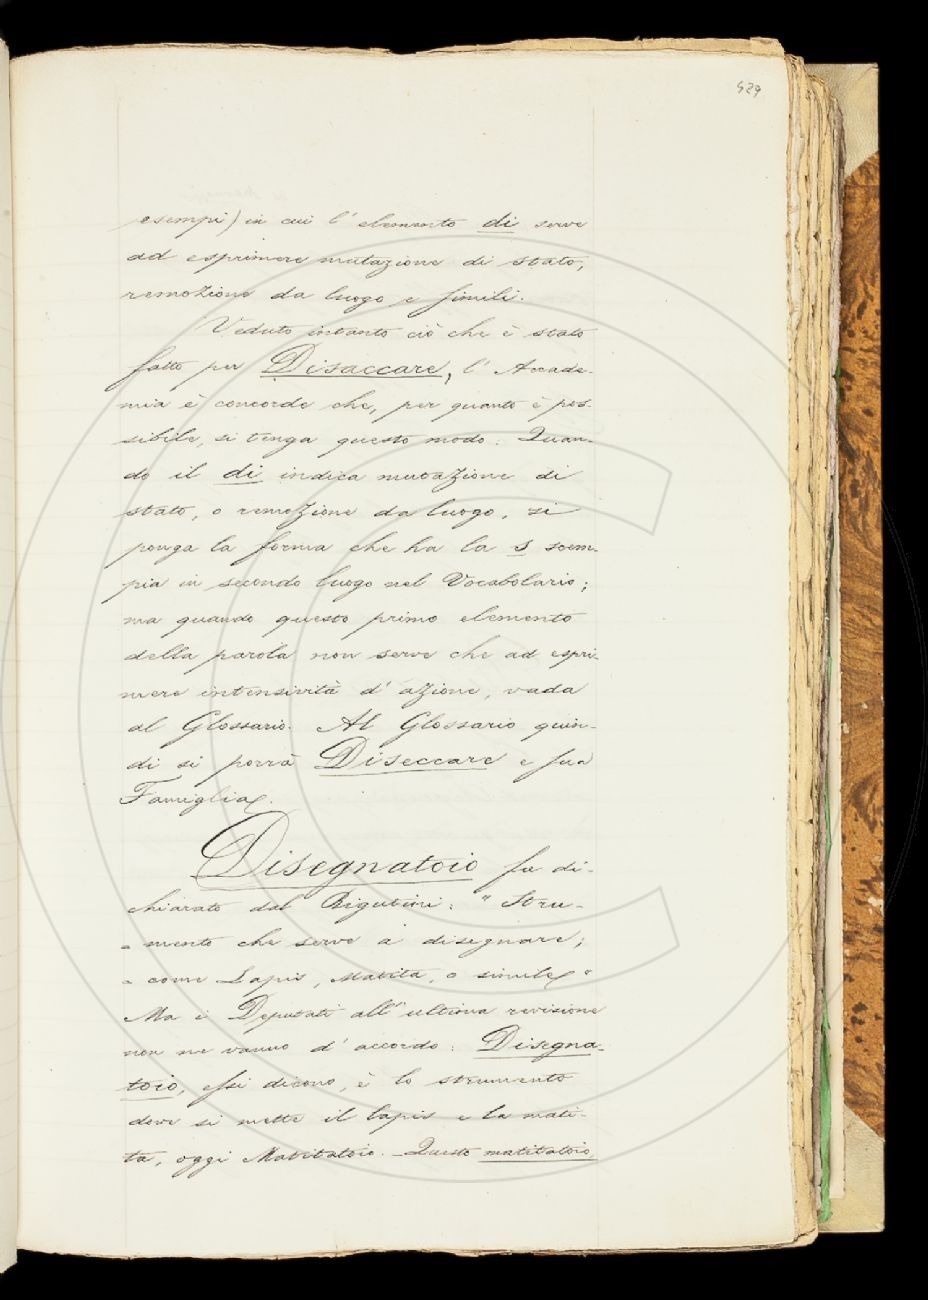 429
esempi) in cui l' elemento di serve
ad esprimere mutazione di stato,
remozione da luogo e simili.
Veduto intanto ciò che è stato
fatto per Disaccare, l' Accade-
mia è concorde che, per quanto è pos-
sibile, si tenga questo modo: Quan-
do il di indica mutazione di
stato, o remozione da luogo, si
ponga la forma che ha la s scem-
pia in secondo luogo nel Vocabolario;
ma quando questo primo elemento
della parola non serve che ad espri-
mere intensività d' azione, vada
al Glossario. Al Glossario quin-
di si porrà Diseccare e sua
Famiglia.
Disegnatoio fu di-
chiarato dal Rigutini: " Stru-
" mento che serve a disegnare;
" come Lapis, Matita, o simile "
Ma i Deputati all' ultima revisione
non ne vanno d' accordo: Disegna-
toio, essi dicono, è lo strumento
dove si mette il lapis e la mati-
ta, oggi Matitatoio. Questo matitatoio,